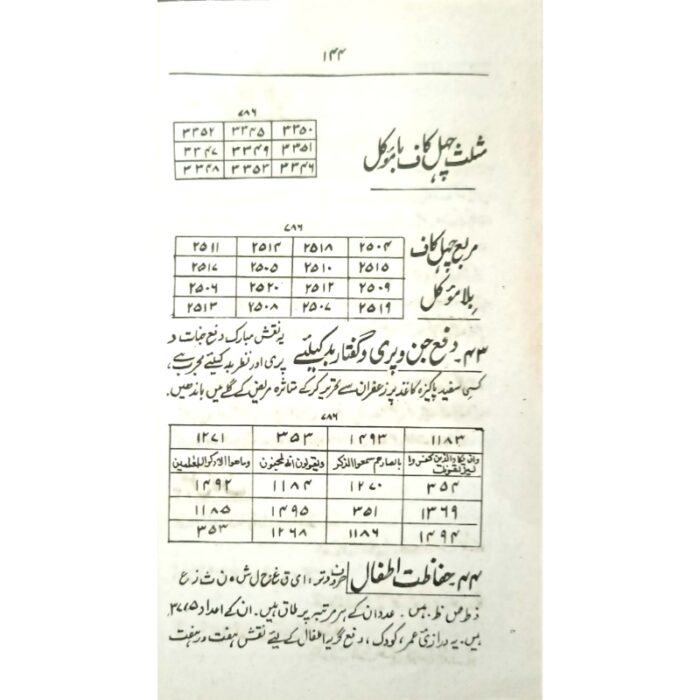 ۱۴۴
مثلث چہل کاف با مؤکل
۷۸۶
۳۳۵۲ ۳۳۴۵ ۳۳۵۰
۳۳۴۷ ۳۳۴۹ ۳۳۵۱
۳۳۴۸ ۳۳۵۳ ۳۳۴۶
مربع چہل کاف
بلا مؤکل
۷۸۶
۲۵۱۱ ۲۵۱۴ ۲۵۱۸ ۲۵۰۴
۲۵۱۷ ۲۵۰۵ ۲۵۱۰ ۲۵۱۵
۲۵۰۶ ۲۵۲۰ ۲۵۱۲ ۲۵۰۹
۲۵۱۳ ۲۵۰۸ ۲۵۰۷ ۲۵۱۹
۴۳۔ دفع جن و پری و گفتار بد کیلئے یہ نقش مبارک دفع جنات و
پری اور نظر بد کیلئے مجرب ہے،
کسی سفید پاکیزہ کاغذ پر زعفران سے تحریر کر کے متاثرہ مریض کے گلے میں باندھیں۔
۷۸۶
۱۲۷۱ ۳۵۳ ۱۴۹۳ ۱۱۸۳
وان یکاد الذین کفروا لیزلقونک بابصارھم سمعوا الذکر ویقولون انہ لمجنون وماھو الا ذکر للعلمین
۱۴۹۲ ۱۱۸۴ ۱۲۷۰ ۳۵۴
۱۱۸۵ ۱۴۹۵ ۳۵۱ ۱۳۶۹
۳۵۳ ۱۲۶۸ ۱۱۸۶ ۱۴۹۴
۴۴۔ حفاظت اطفال حروف وتر، ا ی ق غ ج ل ش ہ ن ث ز ع
ذ ط ص ظ۔ ہیں۔ عدد ان کے ہر مرتبہ پر طاق ہیں۔ ان کے اعداد ۳۷۷۵
ہیں۔ یہ درازی عمر، کودک، دفع گریہ اطفال کے لیئے نقش ہفت در ہفت